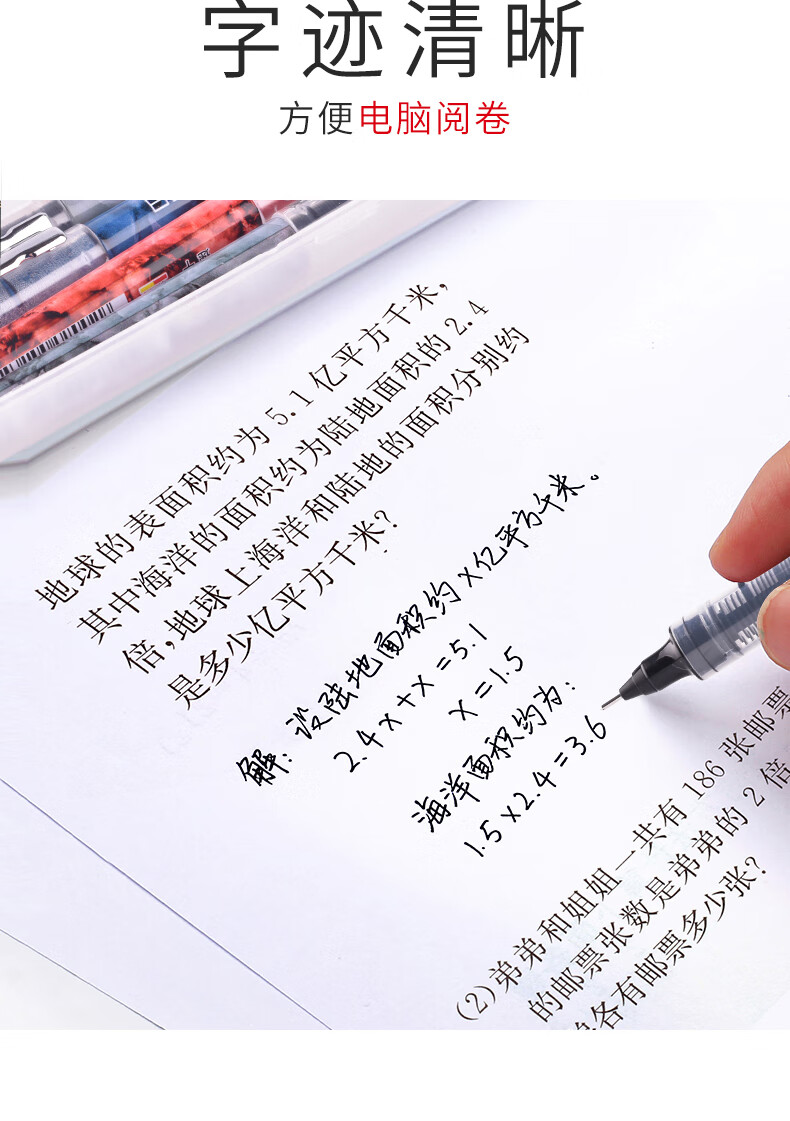 字迹清晰
方便电脑阅卷
地球的表面积约为5.1亿平方千米,
其中海洋的面积约为陆地面积的2.4
倍,地球上海洋和陆地的面积分别约
是多少亿平方千米?
解: 设陆地面积约x亿平方千米。
2.4x+x=5.1
x=1.5
海洋面积约为:
1.5×2.4=3.6
(2)弟弟和姐姐一共有186张邮票
的邮票张数是弟弟的2倍
各有邮票多少张?